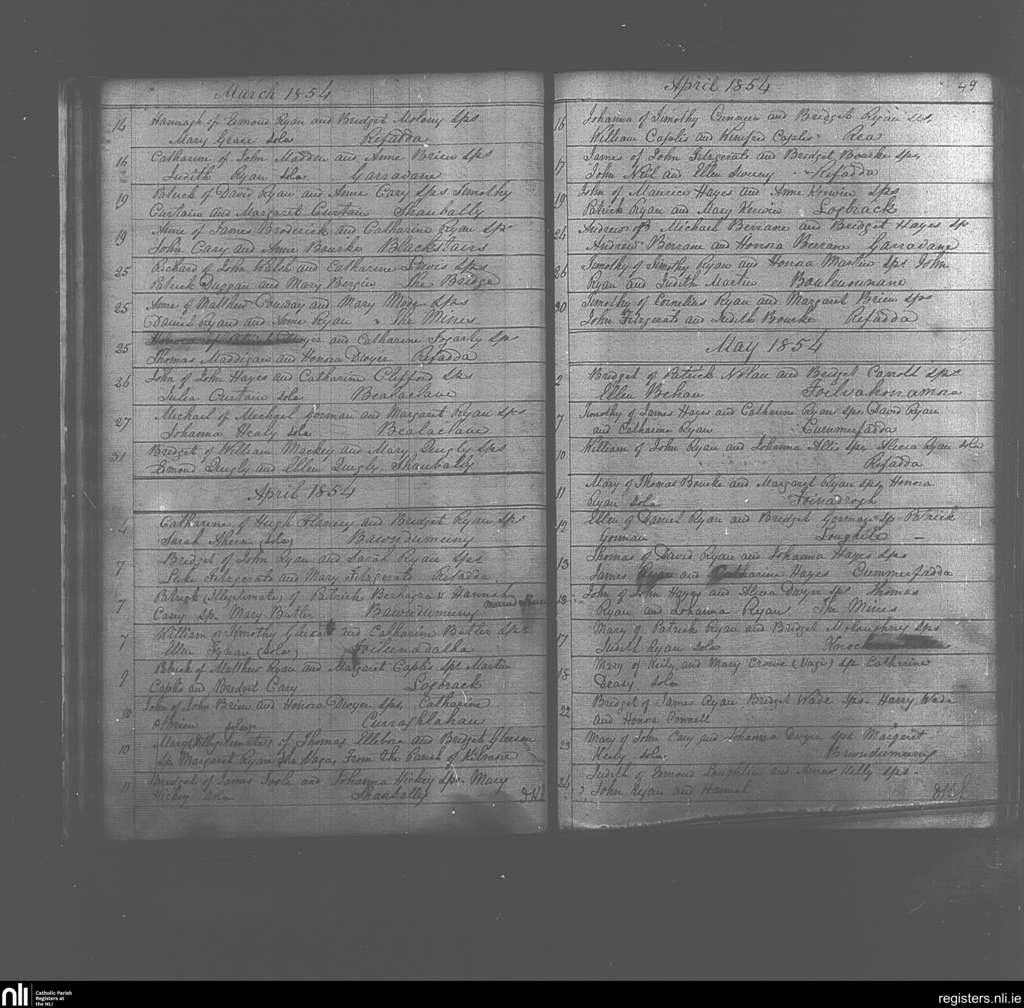 March 1854
14 Hannagh of Edmond Ryan and Bridget Molony Sps
Mary Grace Sola Rifadda
16 Catharine of John Madden and Anne Brien Sps
Judith Ryan Sola Garradane
19 Patrick of David Ryan and Anne Cary Sps Timothy
Curtain and Margaret Curtain Shanbally
19 Anne of James Broderick and Catharine Ryan Sps
John Cary and Anne Bourke Blackstairs
25 Richard of John Welsh and Catharine Davis Sps
Patrick Duggan and Mary Bergin The Bridge
25 Anne of Matthew Conway and Mary Sps
Daniel Ryan and Anne Ryan The Mines
25 Honora of Patrick Dwyer and Catharine Fogarty Sps
Thomas Maddigan and Honora Dwyer Rifadda
26 John of John Hayes and Catharine Clifford Sps
Julia Curtain Sola Bealaclave
27 Michael of Michael Gorman and Margaret Ryan Sps
Johanna Healy Sola Bealaclave
31 Bridget of William Mackey and Mary Quigly Sps
Edmond Quigly and Ellen Quigly Shanbally
April 1854
4 Catharine of Hugh Flannery and Bridget Ryan Sps
Sarah Ahern (Sola) Bawndumuiny
7 Bridget of John Ryan and Sarah Ryan Sps
Luke Fitzgerats and Mary Fitzgerats Rifadda
7 Patrick (Illegitimate) of Patrick Berhagra & Hannah
Carry Sp. Mary Butler Bawndumuny
7 William of Timothy Gleeson and Catharine Butler Sps
Ellen (Sola) Foileenadatha
9 Patrick of Matthew Ryan and Margaret Caplis Sps Martin
Caplis and Bridget Cary Logbrack
10 John of John Brien and Honora Dwyer Sps, Catharine
O'Brien Solas Curraghlahan
10 Mary (Illegitimate) of Thomas Ellebora and Bridget Gleeson
Sp. Margaret Ryan From the Parish of Kilmore
11 Bridget of James Toole and Johanna Hickey Sps. Mary
Hickey Sola Shanbally
April 1854 49
16 Johanna of Timothy and Bridget Ryan Sps,
William Caplis and Winifred Caplis Rea
17 James of John Fitzgerats and Bridget Bourke Sps,
John Neil and Ellen Sweeny Rifadda
19 John of Maurice Hayes and Anne Kerwin Sps
Patrick Ryan and Mary Kerwin Logbrack
24 Andrew of Michael Berrane and Bridget Hayes Sp
Andrew Berrane and Honora Berrane Garradane
26 Timothy of Timothy Ryan and Honora Martin Sps John
Ryan and Judith Martin Booleounane
30 Timothy of Cornelius Ryan and Margaret Brien Sps
John Fitzgerats and Judith Bourke Rifadda
May 1854
2 Bridget of Patrick Nolan and Bridget Carroll Sps
Ellen Behan Foilvahonamora
7 Timothy of James Hayes and Catherine Ryan Sps, David Ryan
and Catharine Ryan Cummerfadda
10 William of John Ryan and Johanna Allis Sps Alicia Ryan Sola
Rifadda
11 Mary of Thomas Bourke and Margaret Ryan Sps, Honora
Ryan Sola
12 Ellen of Daniel Ryan and Bridget Gorman Sp Patrick
Gorman Loughile
13 Thomas of David Ryan and Johanna Hayes Sps
James Ryan and Catharine Hayes Cummerfadda
John of John Hayes and Alicia Dwyer Sps Thomas
Ryan and Johanna Ryan The Mines
17 Mary of Patrick Ryan and Bridget Moloughney Sps
Judith Ryan Sola
18 Mary of Keily and Mary Crowe (Vagi) Sp Catherine
Deasy Sola
22 Bridget of James Ryan Bridget Wade Sps. Harry Wade
and Honora Connell
23 Mary of John Cary and Johanna Dwyer Sps Margaret
Keily Sola Bawndumuny
24 Judith of Edmond Laughlin and Kelly Sps.
John Ryan and
nli Catholic Parish
Registers at
the NLI
registers.nli.ie